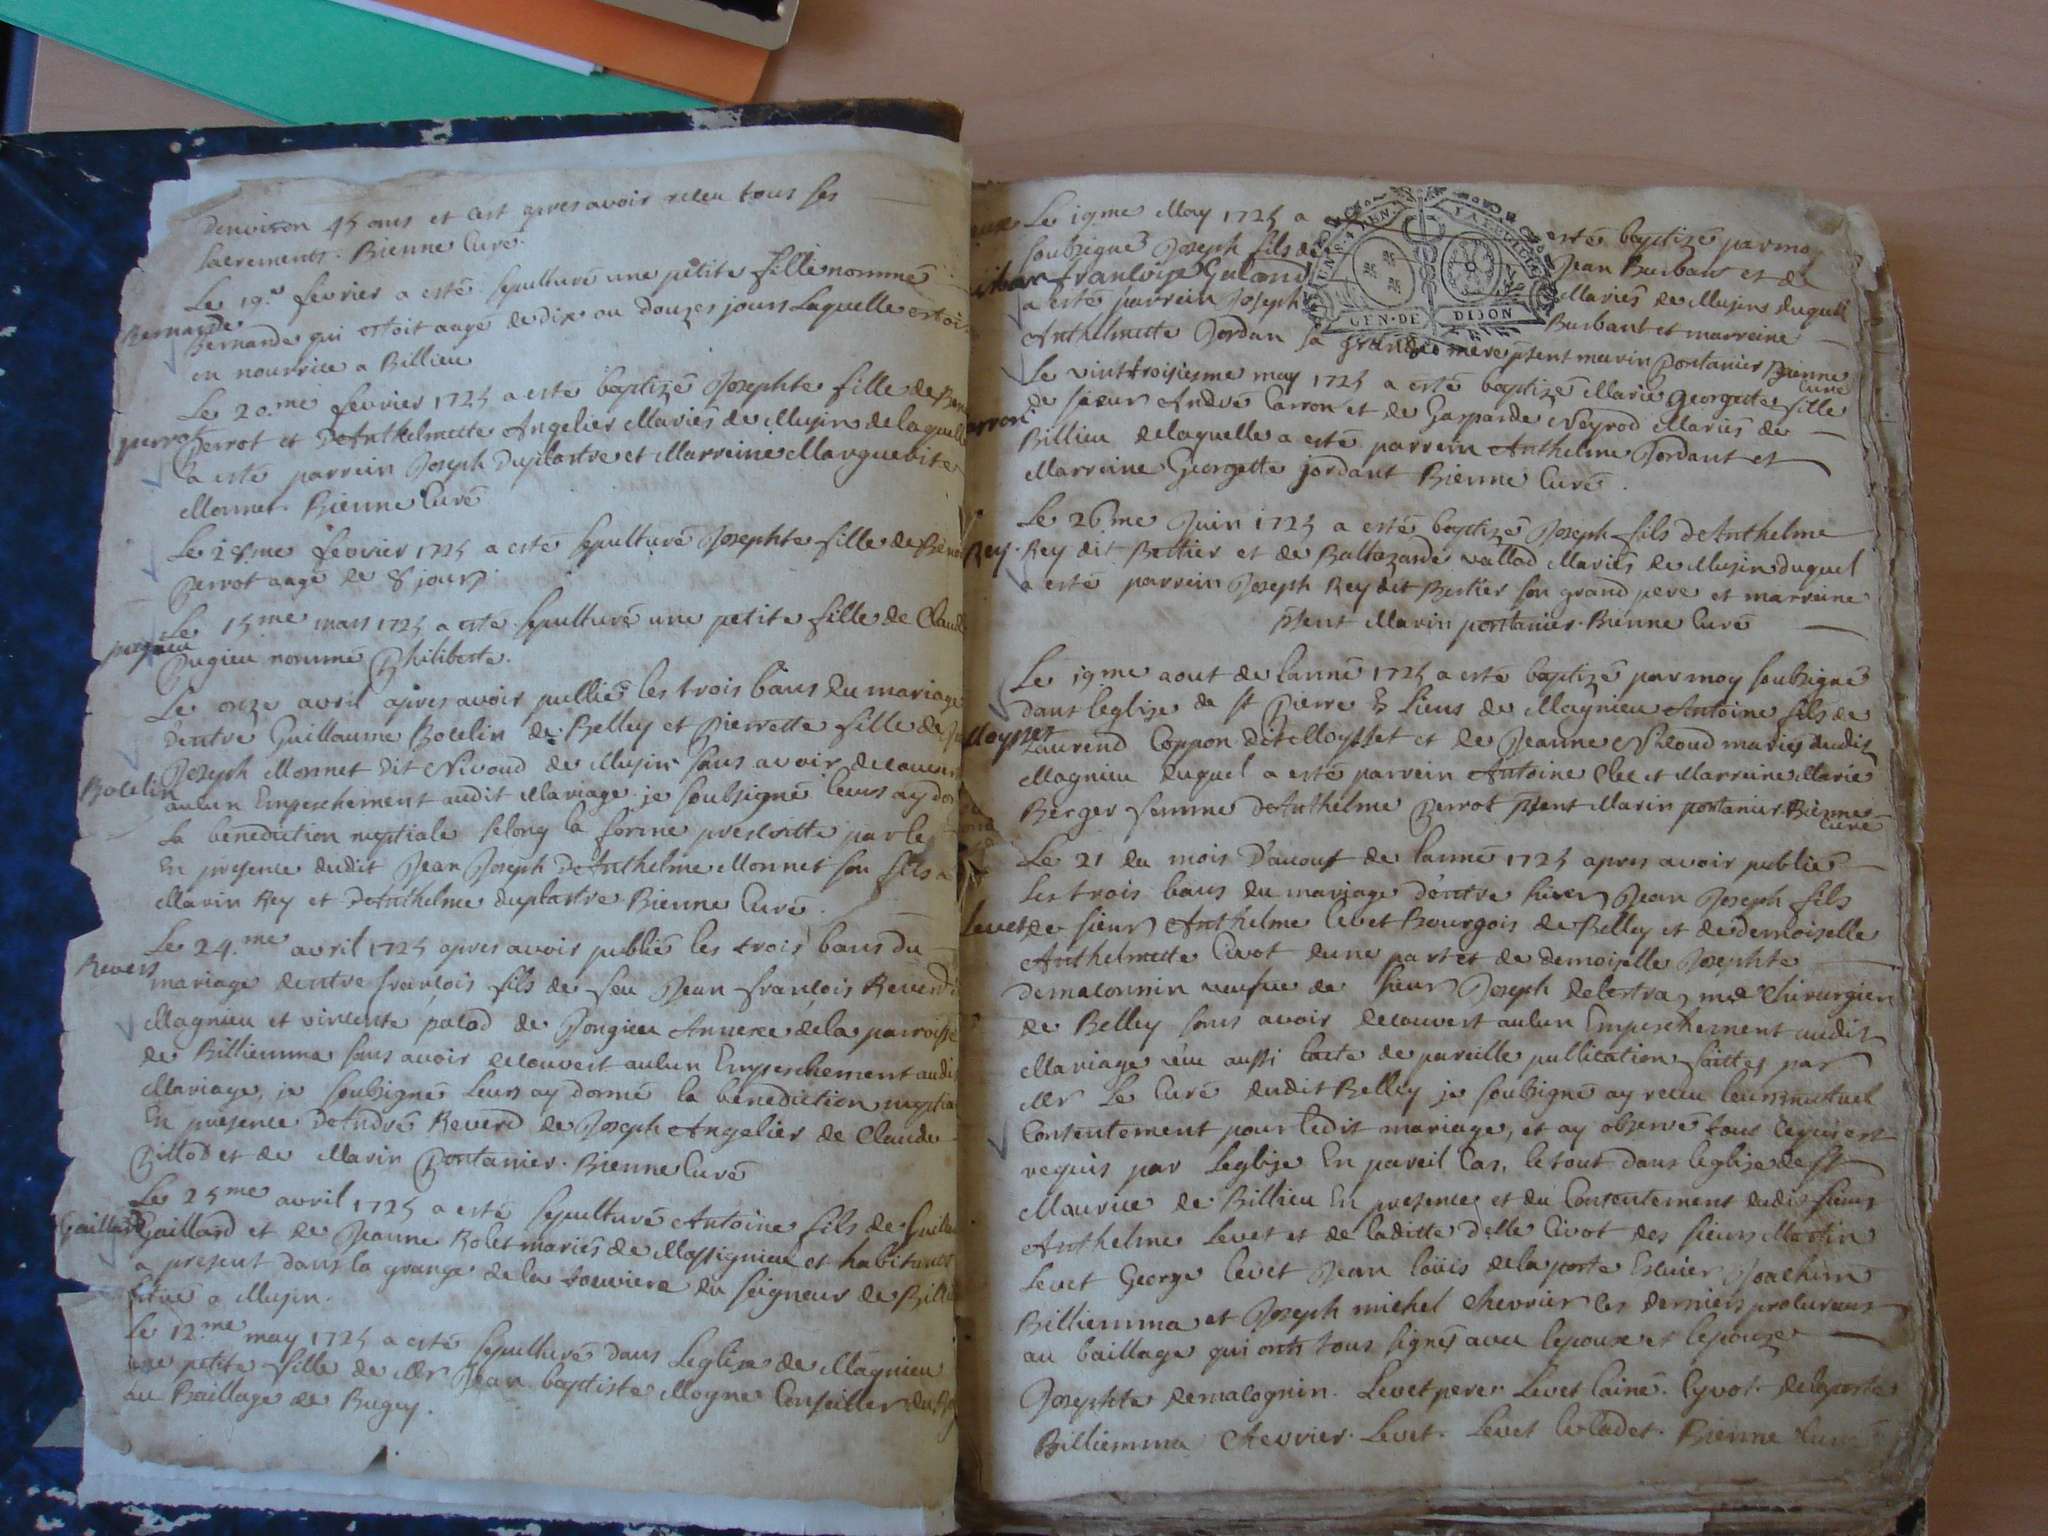 denviron 45 ans et cest apres avoir receu tous ses
sacrements. Bienne Curé.
Le 19.e fevrier a esté sepulturé une petite fille nommé
Bernarde
Bernarde qui estoit aagé de dix ou douzes jours Laquelle estoit
en nourrice a Billieu
Le 20.me fevrier 1725 a esté baptizé Josephte fille de
perrot
Perrot et D'Anthelmette Angelier Mariés de Musin de laquelle
a esté parrein Joseph Duplastre et Marreine Marguerite
Monnet. Bienne Curé
Le 28.me fevrier 1725 a esté sepulturé Josephte fille de
Perrot aagé de 8 jours
Le 15me mars 1725 a esté sepulturé une petite fille de Claude
pugieu
Pugieu nommé Philiberte.
Le onze avril apres avoir publié les trois bans du mariage
d'entre Guillaume Bocelin de Belley et Pierrette fille de
Joseph Monnet dit Nivoud de Musin sans avoir decouvert
Bocelin
aucun Empeschement audit Mariage je soubsigné leurs ay
la benediction nuptiale selong la forme prescritte par le
En presence dudit Jean Joseph D'Anthelme Monnet son fils
Marin Rey et D'Anthelme duplastre Bienne Curé.
Le 24.me avril 1725 apres avoir publié les trois bans du
Reverd
mariage dentre françois fils de feu Jean françois Reverd
Magnieu et vincente palod de Pongieu Annexe de la parroisse
de Billiemma sans avoir decouvert aucun Empeschement audit
Mariage, je soubsigné Leurs ay donné la benediction
En presence D'André Reverd de Joseph Angelier de Claude
Billod et de Marin Pontanier. Bienne Curé
Le 25me avril 1725 a esté sepulturé Antoine fils de
Gaillard
Gaillard et de Jeanne Rolet mariés de Massignieu et habitants
a present dans la grange de la touviere du seigneur de
situé a Musin.
Le 12.me may 1725 a esté sepulturé dans Leglise de Magnieu
une petite fille de Mr Jean baptiste Moyne Conseiller du
au Baillage de Bugey.
Le 19me May 1725 a esté baptizé par moy
soubsigné Joseph fils de Jean Burbant et de
françoise Guland Mariés de Musin duquel
a esté parrein Joseph Burbant et marreine
GEN·DE DIJON
Anthelmette Jordan sa grande mere psent marin Pontanier Bienne
Curé
Le vintroisiesme may 1725 a esté baptizé Marie Georgette fille
de sieur André Carron et de Gasparde Neyrod Mariés de
Billieu delaquelle a esté parrein Anthelme Jordant et
Marreine Georgette jordant Bienne Curé.
Le 26me Juin 1725 a esté baptizé Joseph fils d'Anthelme
Rey.
Rey dit Bertier et de Baltazarde vallod Mariés de Musin duquel
a esté parrein Joseph Rey dit Bertier son grand pere et marreine
psent Marin pontanier. Bienne Curé
Le 19me aout de lanné 1725 a esté baptizé par moy soubsigné
dans leglise de st Pierre Es Liens de Magnieu Antoine fils de
Moysset
Laurend Coppon dit Moysset et de Jeanne Niloud mariés dudit
Magnieu duquel a esté parrein Antoine Clec et Marreine Marie
Berger femme d'Anthelme Perrot psent Marin pontanier. Bienne
Curé
Le 21 du mois d'aoust de lanné 1725 apres avoir publié
les trois bans du mariage d'entre sieur Jean Joseph fils
Levet
de sieur Anthelme levet Bourgois de Belley et de demoiselle
Anthelmette Civot dune part et de demoiselle Josephte
demalonnin veufve de sieur Joseph delestra me chirurgien
de Belley sans avoir decouvert aucun Empeschement audit
Mariage veu aussi lacte de pareille publication faittes par
Mr Le Curé dudit Belley je soubsigné ay receu leurs mutuel
Consentement pour ledit mariage, et ay observé tous ce qui est
requis par Leglise En pareil Cas. le tout dans leglise de st
Maurice de Billieu En presence et du Consentement dudit sieur
Anthelme Levet et de laditte delle Civot des sieurs Martin
Levet George levet Jean loüis delaporte Ecuier Joachim
Billiemma et Joseph michel chevrier les derniers procureurs
au baillage qui onts tous signés avec lepoux et lepouze
Josephte demalognin. Levet pere. Levet lainé. Cyvot. delaporte
Billiemma chevrier. Levet. Levet le Cadet. Bienne Curé